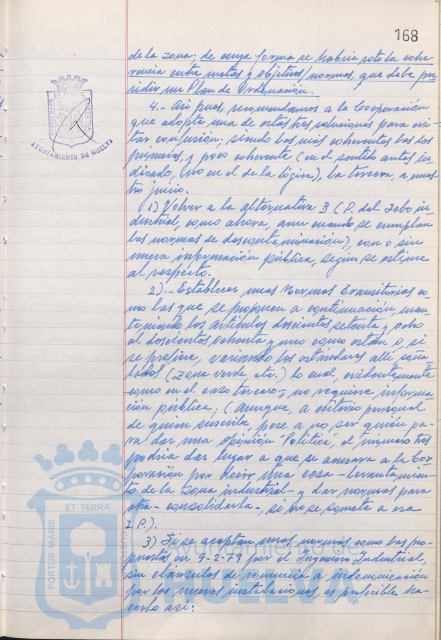 168
de la zona; de cuya forma se habría roto la cohe-
rencia entre metas y objetivos/normas, que debe pre-
sidir un Plan de Ordenación.
4.- Así pues, recomendamos a la Corporación
que adopte una de estas tres soluciones para evi-
tar confusión; siendo las más coherentes las dos
primeras, y poco coherente (en el sentido antes in-
dicado, no en el de la lógica), la tercera, a nues-
tro juicio.
1) Volver a la alternativa B (P. del Sebo in-
dustrial, como ahora, aun cuando se cumplan
las normas de descontaminación), con o sin
nueva información pública, según se estime
al respecto.
2).- Establecer unas Normas Transitorias co-
mo las que se proponen a continuación man-
teniendo los artículos doscientos setenta y ocho
al doscientos ochenta y uno como están o, si
se prefiere, variando los estándares allí seña-
lados (zona verde etc.) lo cual, evidentemente
como en el caso tercero, no requiere informa-
ción pública; (aunque, a criterio personal
de quien suscribe, pese a no ser quién pa-
ra dar una opinión "Política", el número tres
podría dar lugar a que se acusara a la Cor-
poración por decir una cosa -levantamien-
to de la zona industrial- y dar normas para
otra -consolidarla-, si no se somete a esa
I.P.).
3) Si se aceptan unas normas como las pro-
puestas en 9-2-79 por el Ingeniero Industrial,
sin cláusulas de renuncia a indemnización
por las nuevas instalaciones es preferible ha-
cerlo así:
AYUNTAMIENTO DE HUELVA
PORTUS MARIS ET TERRÆ CUSTODIA
Ayuntamiento de
HUELVA